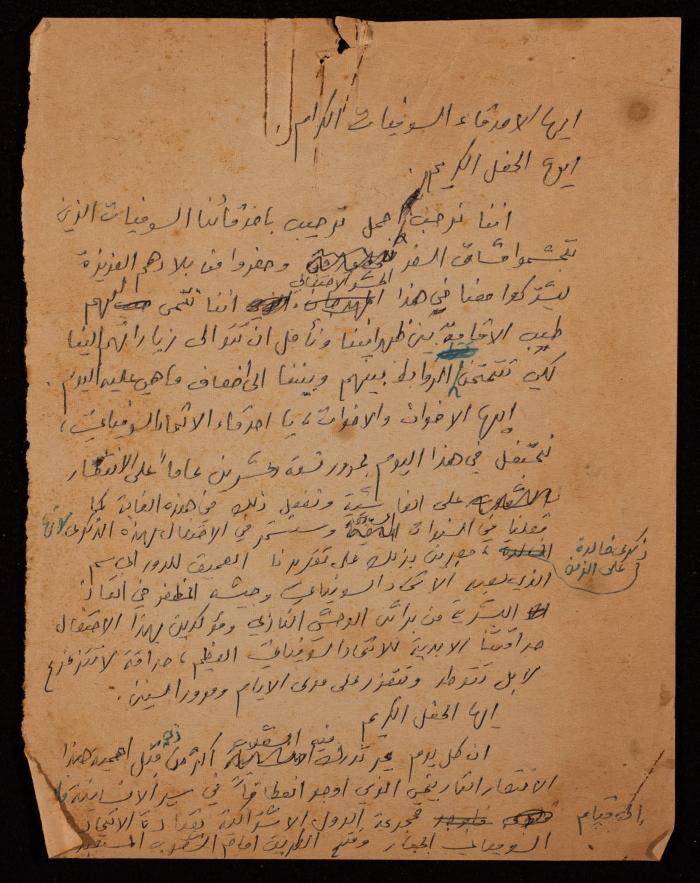 ايها الاصدقاء السوفيات الكرام
ايها الحفل الكريم
اننا نرحب اجمل ترحيب باصدقائنا السوفيات الذين
تجشموا مشاق السفر وحضروا من بلادهم العزيزة
ليشتركوا معنا في هذا الحشد الاحتفالي اننا نتمنى لهم
طيب الاقامة بين ظهرانينا ونأمل ان تتوالى زياراتهم الينا
لكي تتمتن الروابط بينهم وبيننا الى اضعاف ما هي عليه اليوم.
ايها الاخوان والاخوات، يا اصدقاء الاتحاد السوفياتي،
نحتفل في هذا اليوم بمرور تسعة وعشرين عاماً على الانتصار
على الفاشية ونفعل ذلك في هذه الغاية كما
فعلنا في السنوات السابقة وسنستمر في الاحتفال بهذه الذكرى لانها
ذكرى خالدة على الزمن
معبرين بذلك على تقديرنا العميق للدور الذي
الذي لعبه الاتحاد السوفياتي وجيشه المظفر في انقاذ
البشرية من براثن الوحش النازي ومؤكدين بهذا الاحتفال
صداقتنا الابدية للاتحاد السوفياتي العظيم، صداقة لا تتزعزع
لا بل تتوطد وتتعزز على مدى الايام ومرور السنين.
ايها الحفل الكريم
ان كل يوم يمر ندرك فيه اكثر من ذي قبل اهمية هذا
الانتصار التاريخي الذي اوجد انعطافاً في سير الانسانية
الى قيام
مجموعة الدول الاشتراكية بقيادة الاتحاد
السوفياتي الجبار وفتح الطريق امام الشعوب